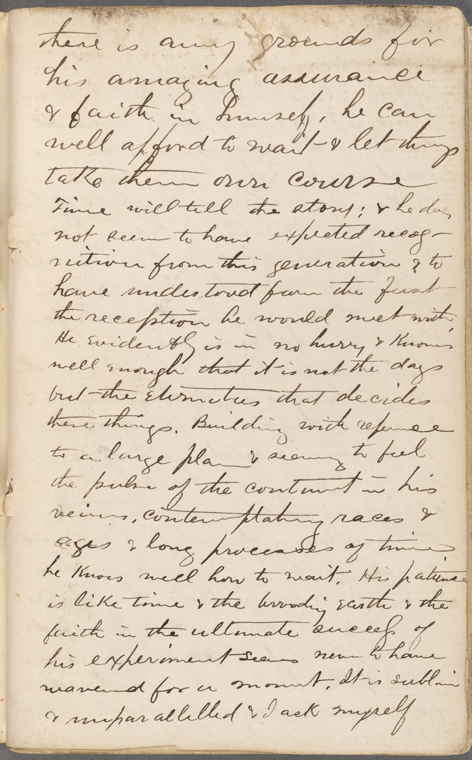 there is any grounds for
his amazing assurance
& faith in himself, he can
well afford to wait & let things
take their own course
Time will tell the story; & he does
not seem to have expected recog-
nition from this generation & to
have understood from the first
the reception he would meet with
He evidently is in no hurry & knows
well enough that it is not the days
but the Eternities that decides
these things. Building with refrence
to a large plan & seeming to feel
the pulse of the continent in his
veins, contemplating races &
ages & long processes of time
he knows well how to wait. His patience
is like time & the brooding earth & the
faith in the ultimate success of
his experiment seems never to have
wavered for a moment. It is sublime
& unparallelled & I ask myself